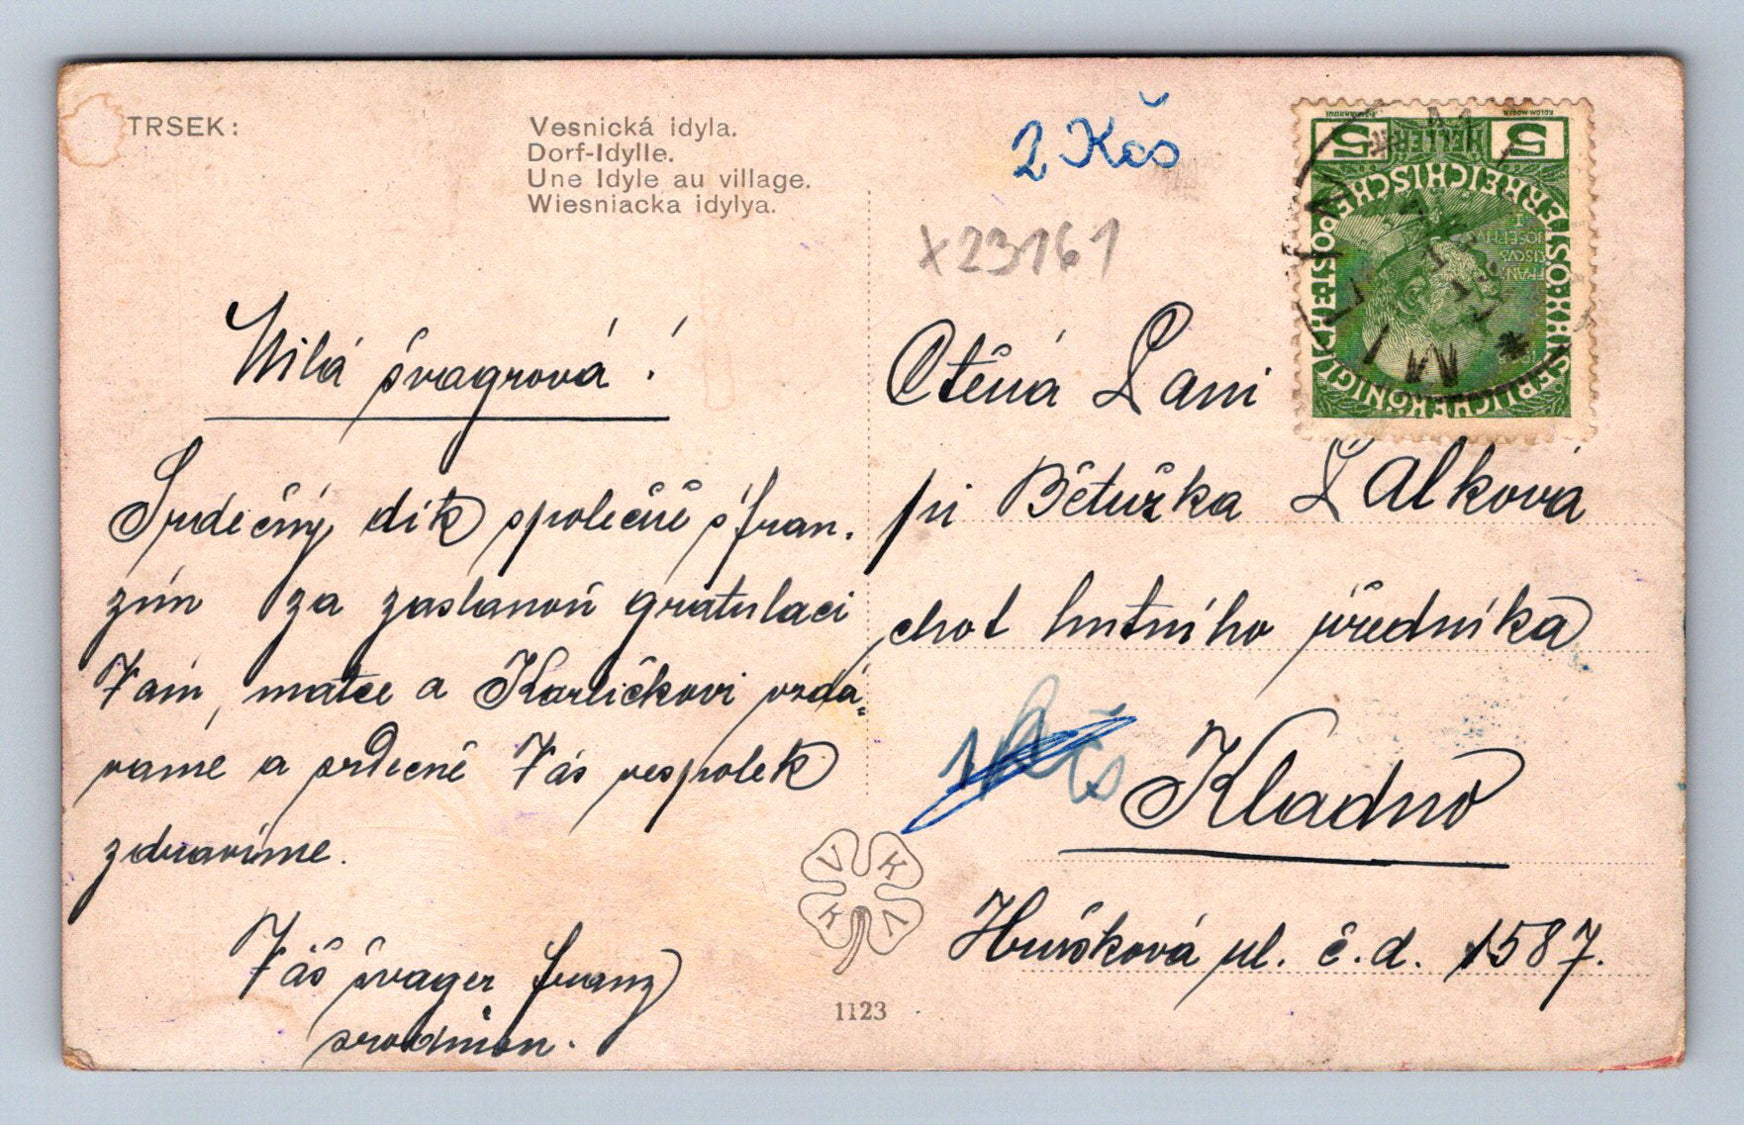 TRSEK:
Vesnická idyla.
Dorf-Idylle.
Une Idyle au village.
Wiesniacka idylya.
2 Kčs
x23161
Milá švagrová!
Srdečný dík společně s fran-
zin za zaslanou gratulaci
Vám, matce a Karlíčkovi vzdá-
váme a srdečně Vás vespolek
zdravíme.
Váš švager Franz
s rodinou.
Ctěná Paní
pí Bětuška Žalková
chot hutního úředníka
Kladno
Husková ul. č.d. 1587.
V K K V
1123
5 HELLER 5
KAISERLICHE KÖNIGLICHE ÖSTERREICHISCHE POST
FRAN
CISCVS
JOSEPHVS
I